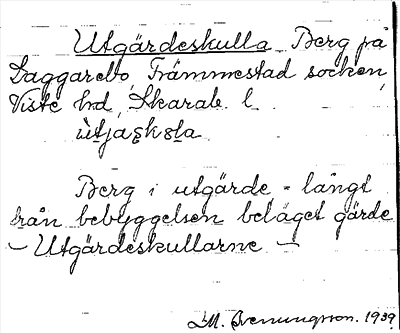 Utgärdeskulla Berg på
Daggarebo, Främmestad socken,
Viste hd, Skarab. l.
Berg i utgärde = långt
från bebyggelsen beläget gärde
– Utgärdeskullarne –
M. 1939.